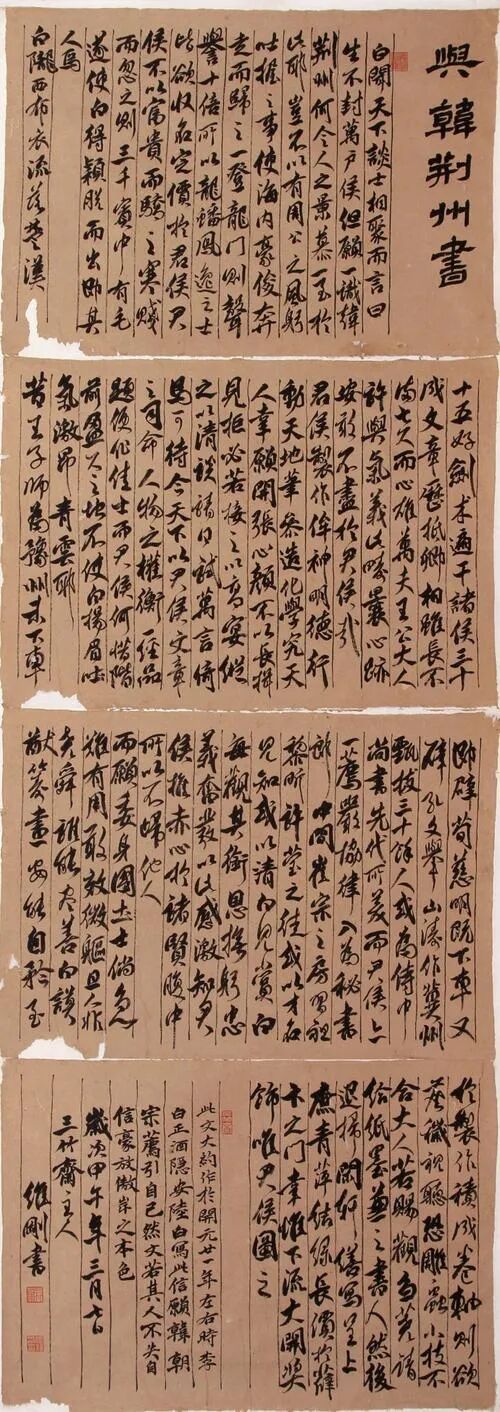 與韓荊州書
白聞天下談士相聚而言曰
生不封萬戶侯但願一識韓
荊州何令人之景慕一至於
此耶豈不以有周公之風躬
吐握之事使海內豪俊奔
走而歸之一登龍門則聲
譽十倍所以龍蟠鳳逸之士
皆欲收名定價於君侯君
侯不以富貴而驕之寒賤
而忽之則三千賓中有毛
遂使白得穎脫而出即其
人焉
白隴西布衣流落楚漢
十五好劍術遍干諸侯三十
成文章歷抵卿相雖長不
滿七尺而心雄萬夫王公大人
許與氣義此疇曩心跡
安敢不盡於君侯哉
君侯製作侔神明德行
動天地筆參造化學究天
人幸願開張心顏不以長揖
見拒必若接之以高宴縱
之以清談請日試萬言倚
馬可待今天下以君侯文章
之司命人物之權衡一經品
題便作佳士而君侯何惜階
前盈尺之地不使白揚眉吐
氣激昂青雲耶
昔王子師為豫州未下車
即辟荀慈明既下車又
辟孔文舉山濤作冀州
甄拔三十餘人或為侍中
尚書先代所美而君侯亦
一薦嚴協律入為秘書
郎 中間崔宗之房習祖
黎昕許瑩之徒或以才名
見知或以清白見賞白
每觀其銜恩撫躬忠
義奮發以此感激知君
侯推赤心於諸賢腹中
所以不歸他人
而願委身國士倘急
難有用敢效微軀且人非
堯舜誰能盡善白謨
猷籌畫安能自矜至
於製作積成卷軸則欲
塵穢視聽恐雕蟲小技不
合大人若賜觀芻蕘請
給紙墨兼之書人然後
退掃閑軒繕寫呈上
庶青萍結綠長價於薛
卞之門幸惟下流大開獎
飾唯君侯圖之
此文大約作於開元廿一年左右時李
白正酒隱安陸白寫此信願韓朝
宗薦引自己然文若其人不失自
信豪放傲岸之本色
歲次甲午年三月七日
三竹齋主人
維剛書